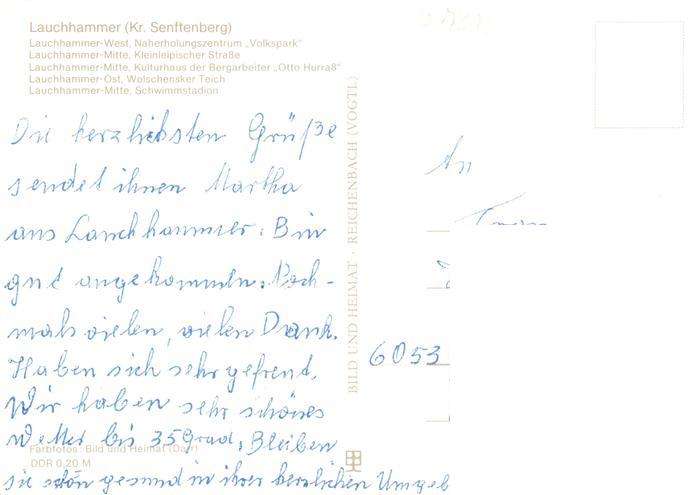 Lauchhammer (Kr. Senftenberg)
Lauchhammer-West, Naherholungszentrum „Volkspark"
Lauchhammer-Mitte, Kleinleipischer Straße
Lauchhammer-Mitte, Kulturhaus der Bergarbeiter „Otto Hurraß"
Lauchhammer-Ost, Wolschensker Teich
Lauchhammer-Mitte, Schwimmstadion
Die herzlichsten Grüße
sendet ihnen Martha
aus Lauchhammer. Bin
gut angekommen. Noch-
mals vielen, vielen Dank.
Haben sich sehr gefreut.
Wir haben sehr schönes
Wetter bis 35 Grad. Bleiben
sie schön gesund in ihrer herrlichen Umgeb
Farbfotos: Bild und Heimat
DDR 0,20 M
BILD UND HEIMAT · REICHENBACH (VOGTL)
An
6053